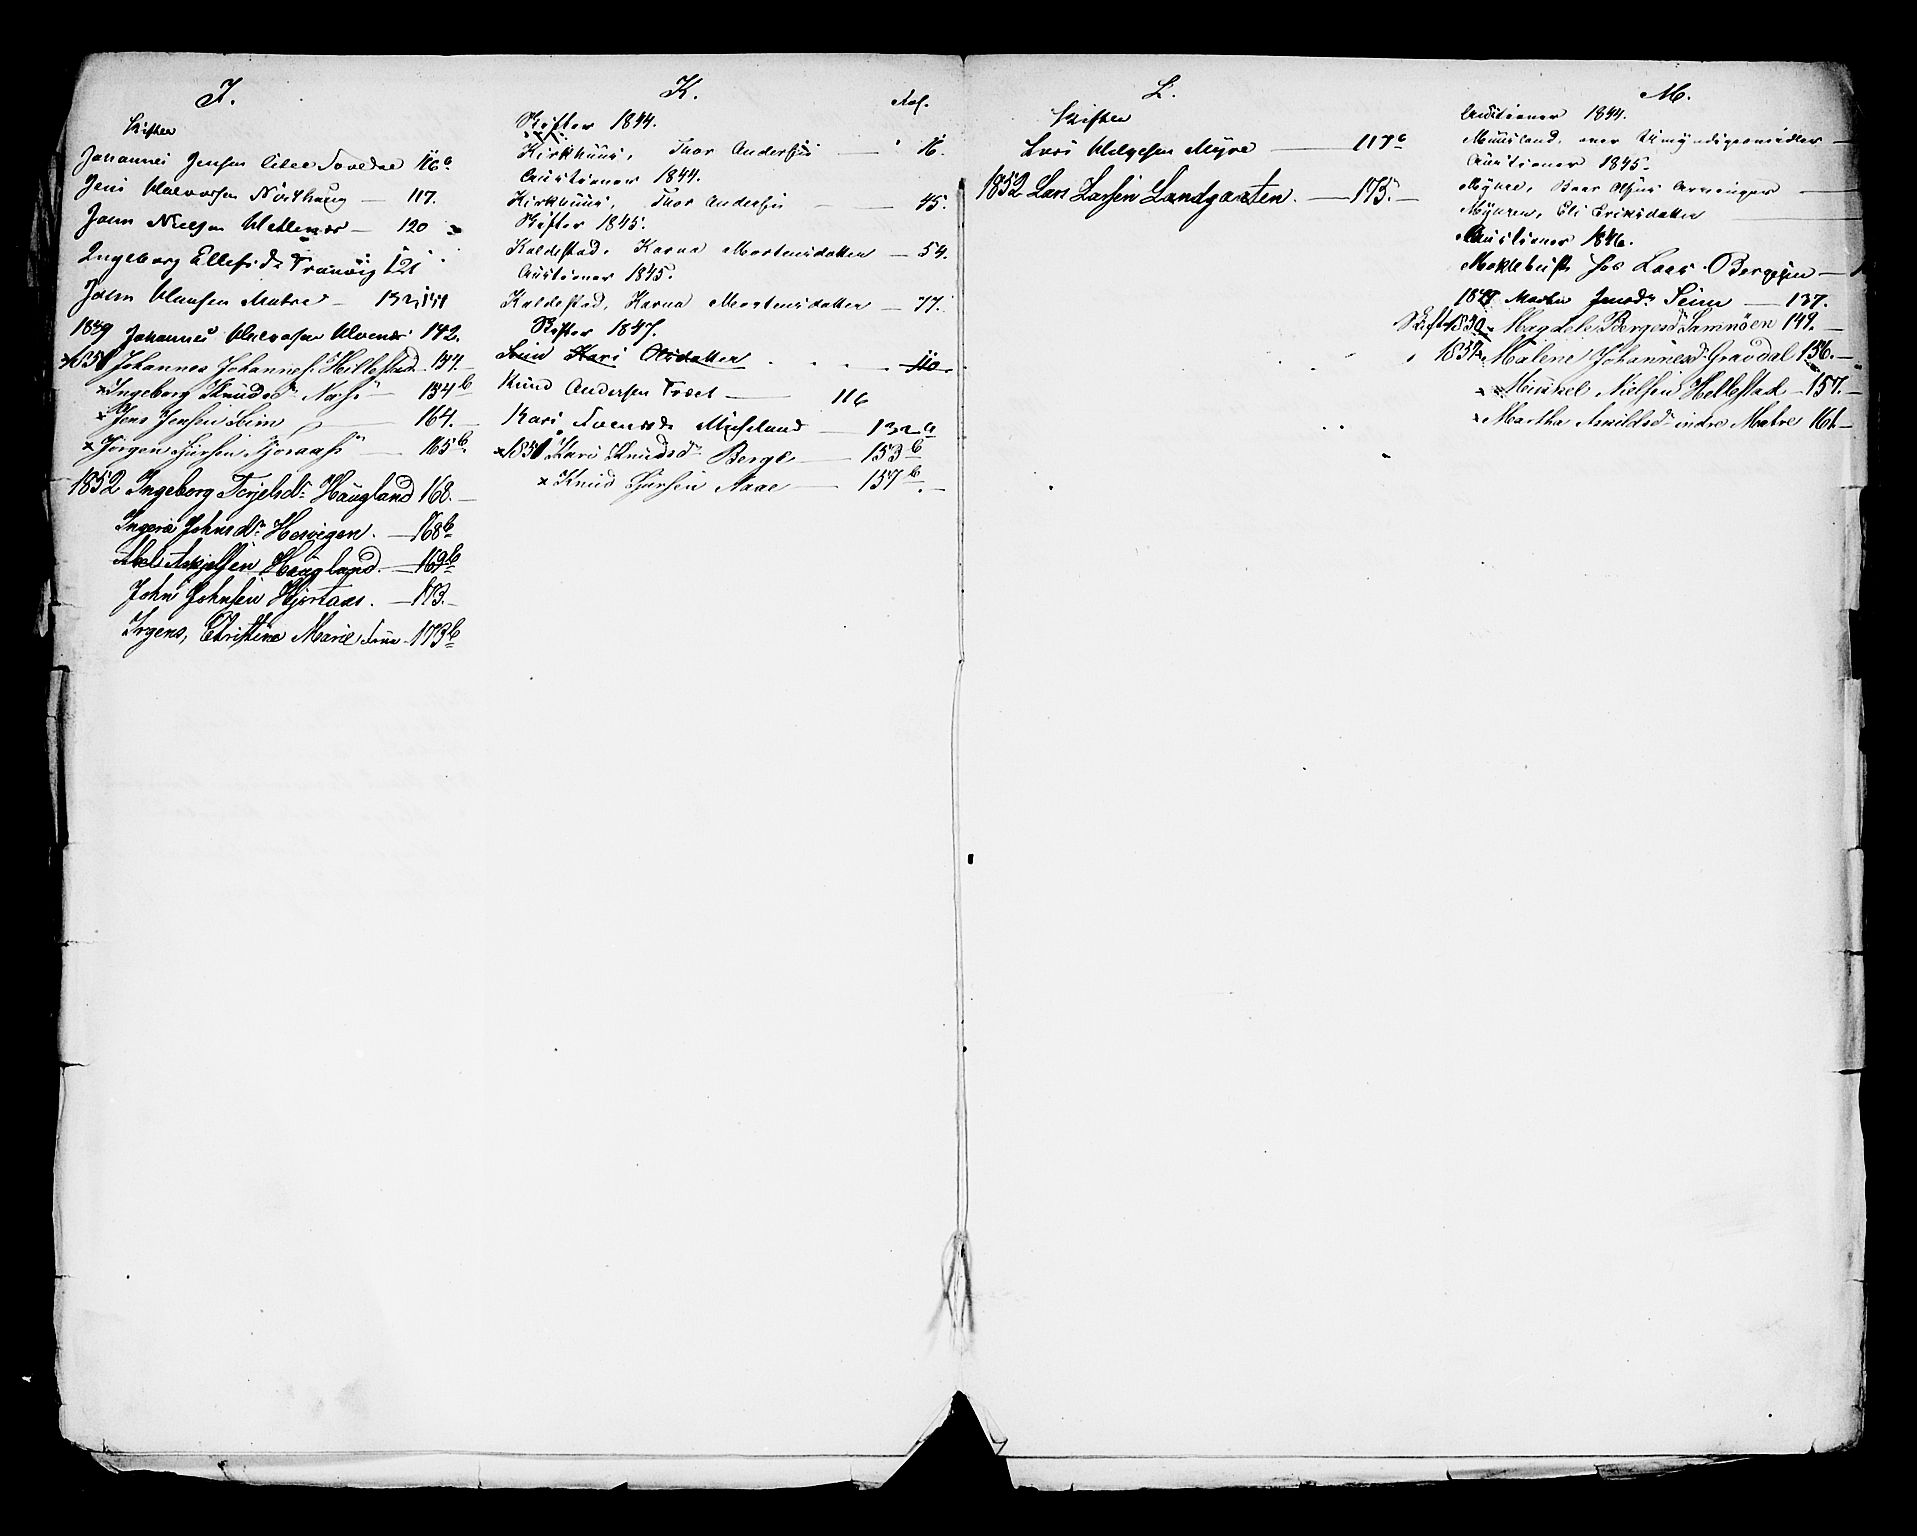 J.
Skifter
Johannes Jensen lille Tovedae 116 b
Jens Halvorsen Northaug — 117.
John Nielsen Mellenæs — 120
Ingeborg Ellefsd. Tranvig 121
John Hansen Matre — 132, 141
1849 Johannes Halvorsen Alvenes 142.
× 1851 Johannes Johannes. Hillestad 154.
× Ingeborg Knudsd. Næss — 154 b
× Jens Jensen Seim — 164.
× Jörgen Sjursen Tjoraas — 165 b
1852 Ingeborg Terjelsdr. Haugland 168.
Ingeri Johnsdr. Hesvigen. — 168 b
Abel Askjelsen Haugland. — 169 b
John Johnsen Hjortaas. — 173.
Irgens, Christine Marie Frue 173 b
K.
Fol.
Skifter 1844.
Kirkhuus, Thor Andersen — 16.
Auctioner 1844.
Kirkhuus, Thor Andersen — 45.
Skifter 1845.
Kaldestad, Karna Mortensdatter — 54.
Auctioner 1845.
Kaldestad, Karna Mortensdatter — 77.
Skifter 1847.
Seim Kari Olsdatter 110
Knud Andersen Træet — 116
Kari Svensd. Miseland — 132 a
× 1851 Kari Knudsd. Berge — 153 b
× Knud Sjursen Aase — 157 b
L.
Skifter
Lars Helgesen Myre — 117 b
1852 Lars Larsen Landgarten. — 175.
M.
Auctioner 1844.
Muusland, over Umyndigesmidler —
Auctioner 1845.
Myhre, Baar Olsens Arvinger —
Myhren, Eli Eriksdatter —
Auctioner 1846.
Moklebust hos Lars Bergesen —
1848 Martha Jensdr. Seim — 137.
Skift 1850 Magdele Bergesdr. Samnöen 149.
1851 Malene Johannesd. Gravdal 156.
× Mikkel Nielsen Hellestad — 157.
× Martha Arnildsd. indre Matre 161